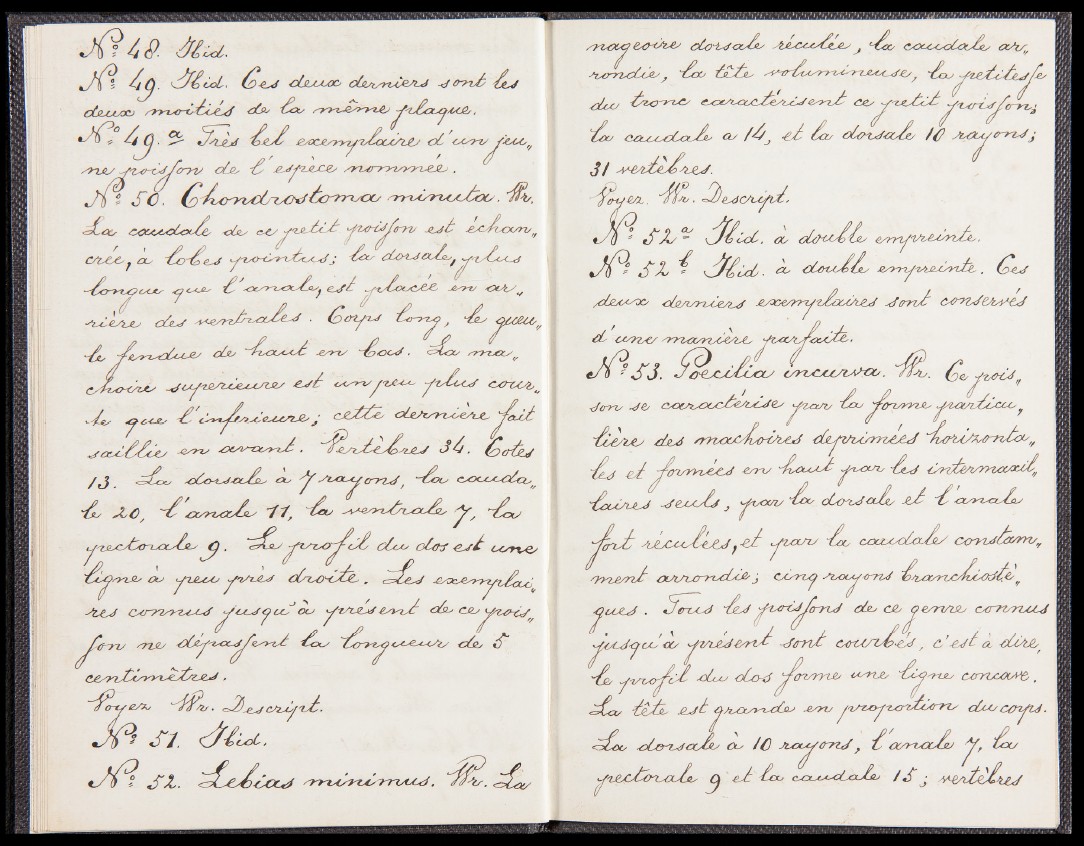 Nº 48. Ibid.
Nº 49. Ibid. Ces deux derniers sont les
deux moitiés de la même plaque.
Nº 49. a Très bel exemplaire d'un jeu„
ne poisſon de l'espèce nommée.
Nº 50. Chondrostoma minuta. Wr.
La caudale de ce petit poisſon est échan„
crée, à lobes pointus; la dorsale, plus
longue que l'anale, est placée en ar„
rière des ventrales. Corps long, le gueu„
le fendue de haut en bas. La ma„
choire superieure est un peu plus cour„
te que l'inferieure; cette dernière fait
saillie en avant. Vertèbres 34. Cotes
13. La dorsale à 7 rayons, la cauda„
le 20, l'anale 11, la ventrale 7, la
pectorale 9. Le profil du dos est une
ligne à peu près droite. Les exemplai„
res connus jusqu'à présent de ce pois„
ſon ne dépasſent la longueur de 5
centimêtres.
Voyez Wr. Descript.
Nº 51. Ibid.
Nº 52. Lebias minimus. Wr. La
nageoire dorsale réculée, la caudale ar„
rondie, la tête volumineuse, la petitesſe
du tronc caractérisent ce petit poisſon;
la caudale a 14, et la dorsale 10 rayons;
31 vertèbres.
Voyez Wr. Descript.
Nº 52 a Ibid. à double empreinte.
Nº 52 b Ibid. à double empreinte. Ces
deux derniers exemplaires sont conservés
d'une manière parfaite.
Nº 53. Poecilia incurva. Wr. Ce pois„
son se caractérise par la forme particu„
lière des machoires deprimées horizonta„
les et formées en haut par les intermaxil„
laires seuls, par la dorsale et l'anale
fort réculées, et par la caudale constam„
ment arrondie; cinq rayons branchiostè„
gues. Tous les poisſons de ce genre connus
jusqu'à présent sont courbés, c'est à dire,
le profil du dos forme une ligne concave.
La tête est grande en proportion du corps.
La dorsale à 10 rayons, l'anale 7, la
pectorale 9 et la caudale 15; vertèbres